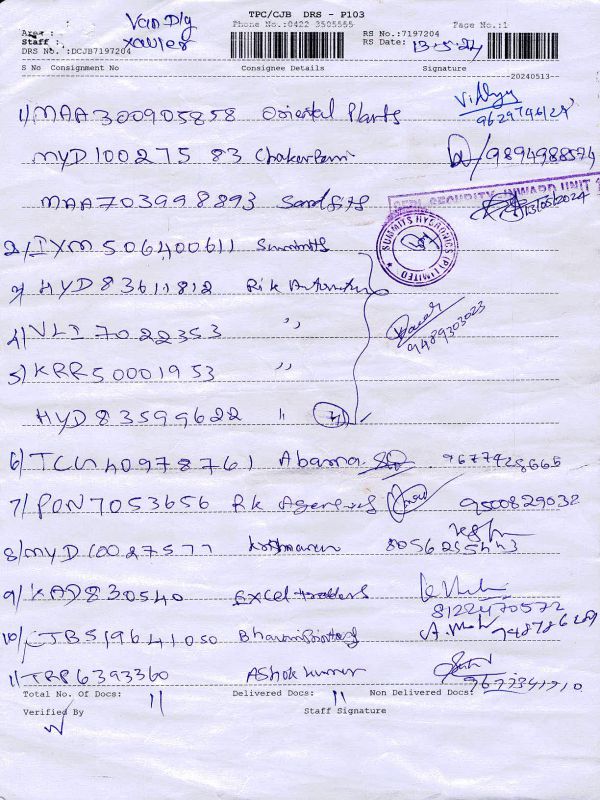 TPC/CJB DRS - P103
Van Dlg
Area :
Phone No.:0422 3505555
Page No.:1
Staff :
Xavier
RS No.:7197204
DRS No. :DCJB7197204
RS Date: 13-5-24
S No Consignment No Consignee Details Signature
20240513
1) MAA300905858 Oriental Plants Vidhya
9629796129
MYD100275 83 Chakarpani 9894988574
MAA703998893 Sandfits
SECURITY INWARD UNIT 1
13/05/2024
SUMMITS HYGRONICS (P) LIMITED
2) IXM506400611 Summits
3) HYD83611812 Rik Automation
4) VLI7022353 ,,
9489303023
5) KRR50001953 ,,
HYD83599622 ,,
6) TCN40978761 Abarna 9677928666
7) PON7053656 RK Agencies 9500829032
8) MYD10027577 8056255443
9) KAD830540 Excel traders
8122470572
10) CJB519641050
11) TRP6393360 Ashok kumar
9677341710
Total No. Of Docs: 11 Delivered Docs: 11 Non Delivered Docs:
Verified By Staff Signature